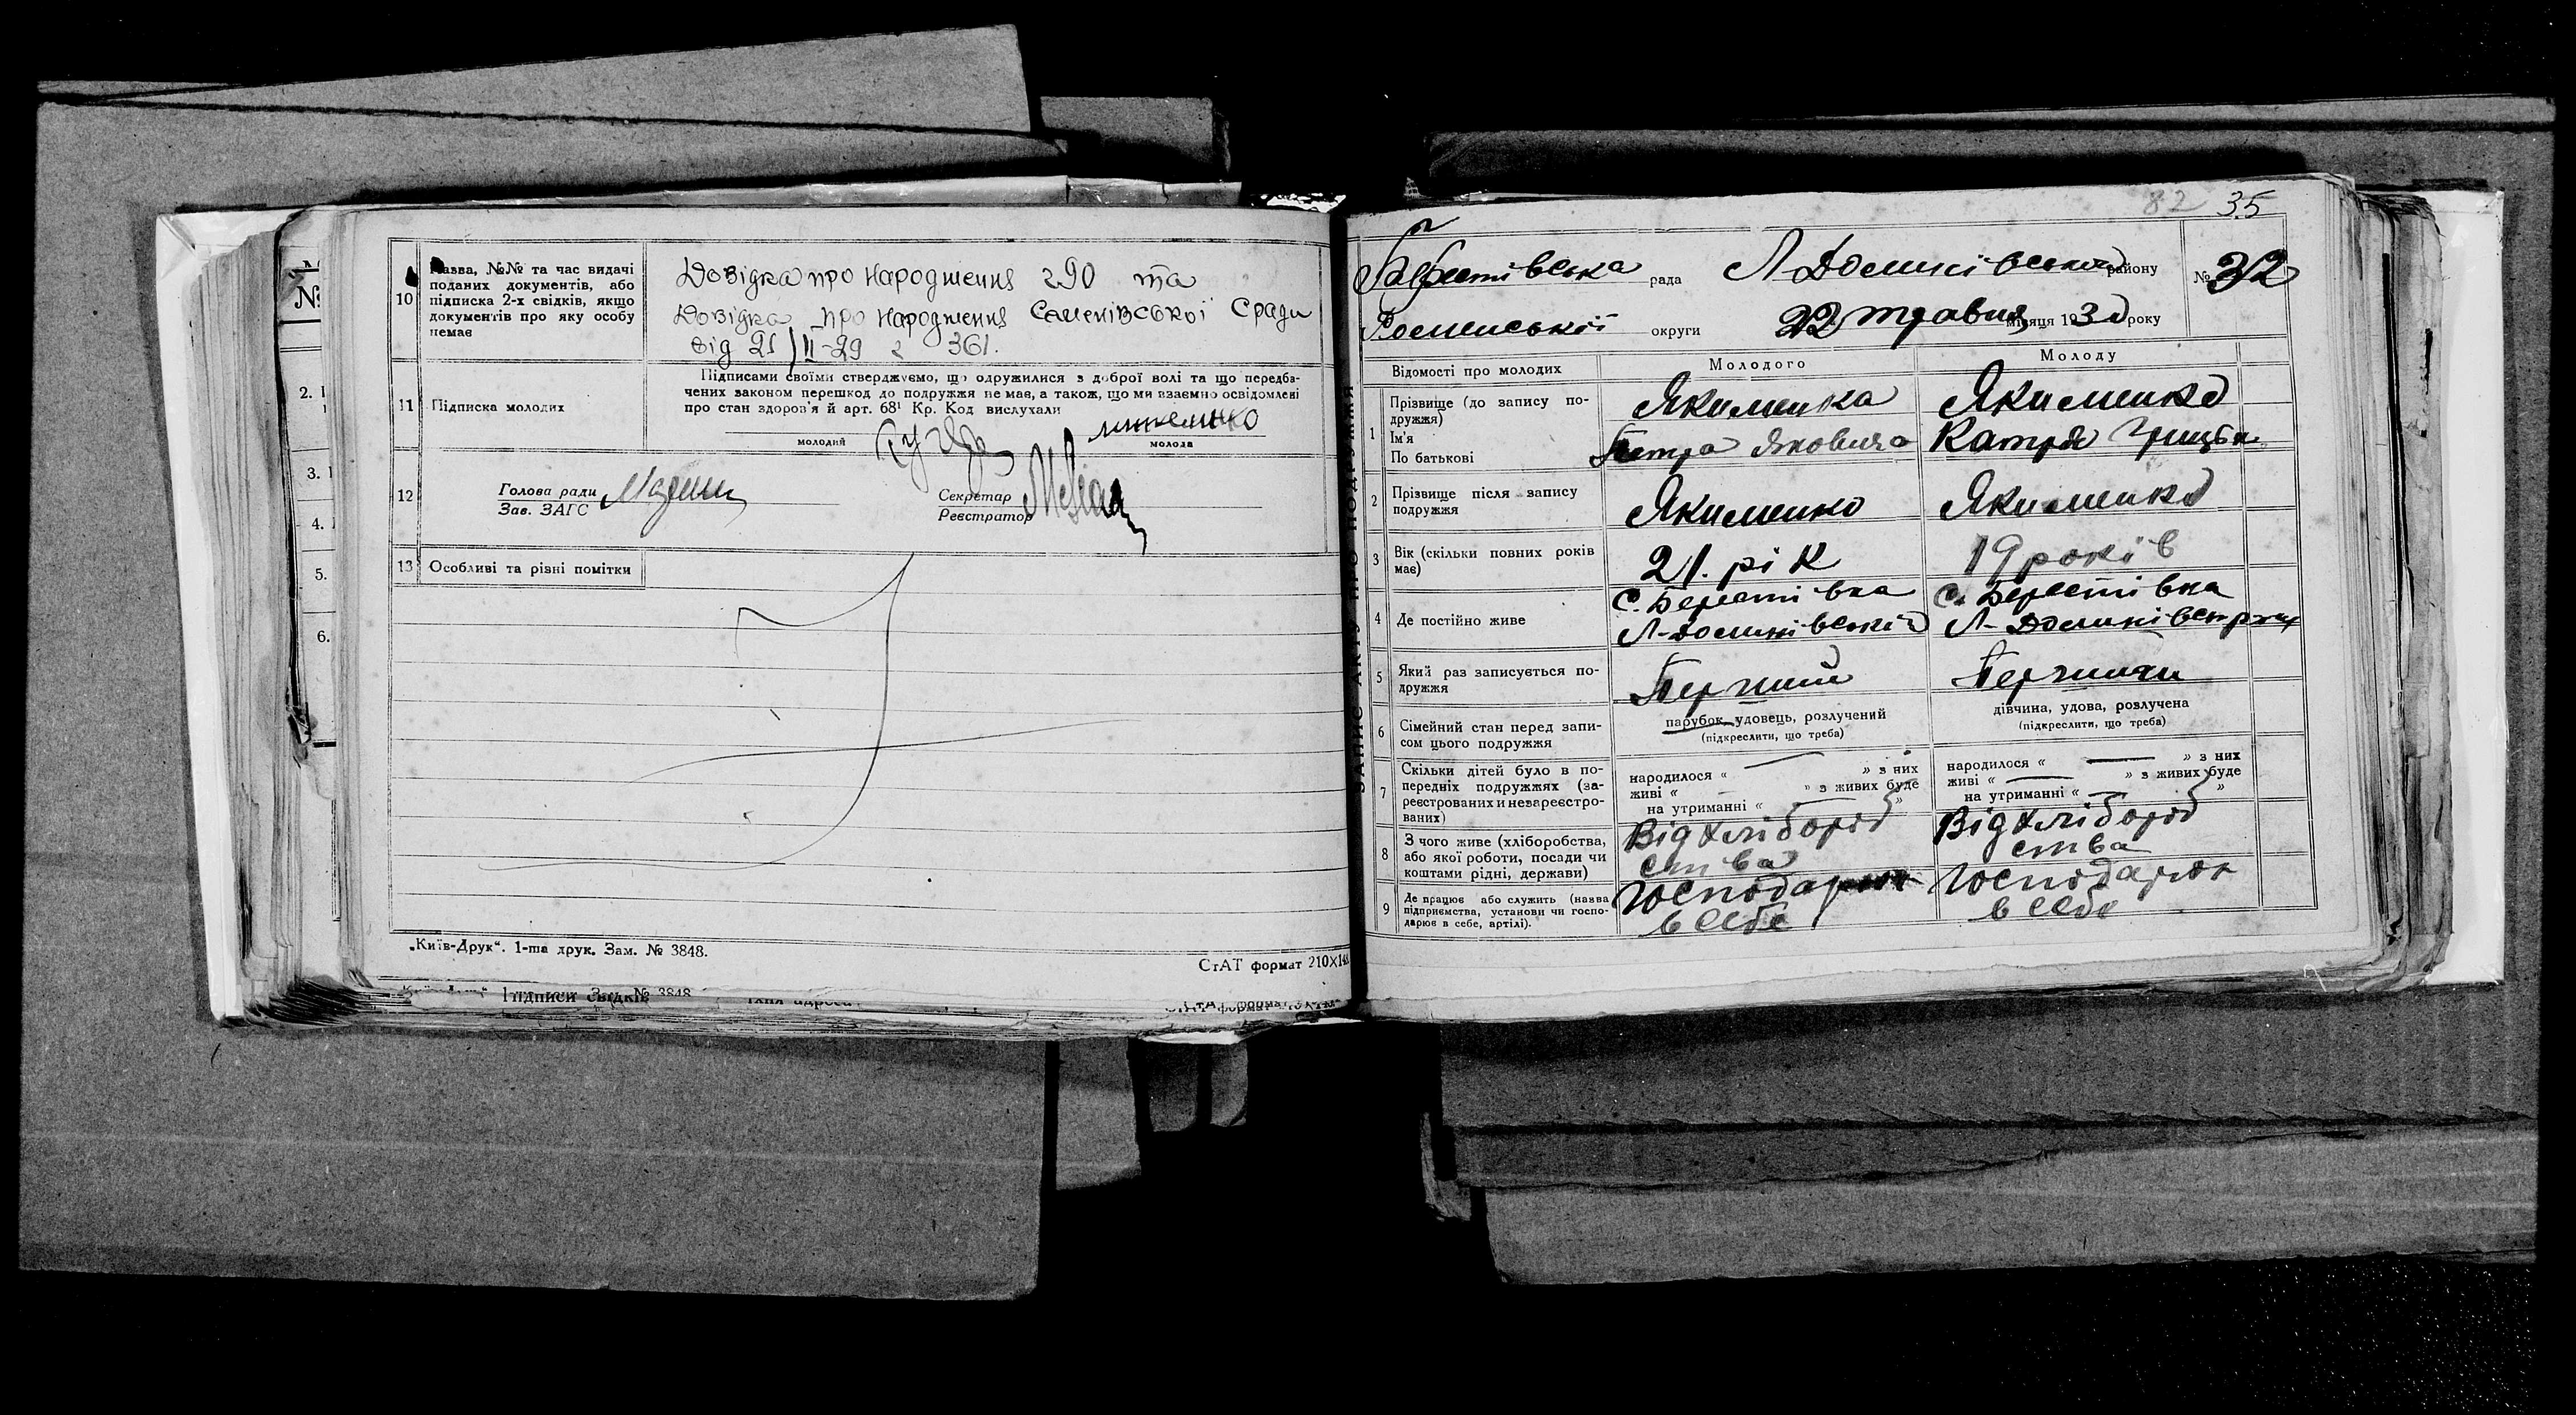 10 Назва, №№ та час видачі
поданих документів, або
підписка 2-х свідків, якщо
документів про яку особу
немає
Довідка про народження 290 та
Довідка про народження Сменівської Сради
від 21/II-29 г 361.
11 Підписка молодих
Підписами своїми стверджуємо, що одружилися з доброї волі та що передба-
чених законом перешкод до подружжя не має, а також, що ми взаємно освідомлені
про стан здоров'я й арт. 68¹ Кр. Код вислухали
молодий
молода
12 Голова ради
Зав. ЗАГС
Секретар
Реєстратор
13 Особливі та різні помітки
„Київ-Друк“. 1-ша друк. Зам. № 3848.
СтАТ формат 210×148
№
2.
3.
4.
5.
6.
Підписи свідків
82 35
Берестівська рада Л Долинівського району № 32
Роменської округи 22 травня місяця 1930 року
ЗАПИС АКТУ ПРО ПОДРУЖЖЯ
Відомості про молодих Молодого Молоду
1 Прізвище (до запису по-
дружжя)
Ім'я
По батькові
Якименка Якименко
Петра Яковича Катря Грицьк
2 Прізвище після запису
подружжя
Якименко Якименко
3 Вік (скільки повних років
має)
21. рік 19 років
4 Де постійно живе
С. Берестівка С. Берестівка
Л-Долинівськ Л-Долинівськ
5 Який раз записується по-
дружжя
Перший Перший
6 Сімейний стан перед запи-
сом цього подружжя
парубок, удовець, розлучений
(підкреслити, що треба)
дівчина, удова, розлучена
(підкреслити, що треба)
7 Скільки дітей було в по-
передніх подружжях (за-
реєстрованих и незареєстро-
ваних)
народилося « » з них
живі « » з живих буде
на утриманні « »
народилося « » з них
живі « » з живих буде
на утриманні « »
8 З чого живе (хліборобства,
або якої роботи, посади чи
коштами рідні, держави)
Від хлібороб Від хлібороб
ства ства
9 Де працює або служить (назва
підприємства, установи чи госпо-
дарює в себе, артілі).
господарює господарює
в себе в себе